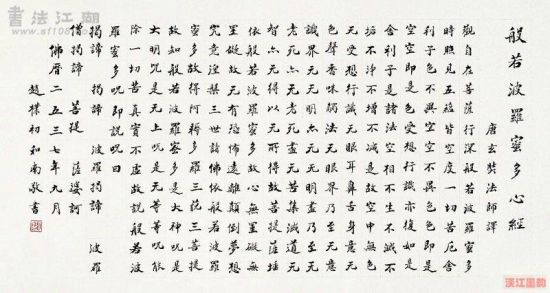 般若波羅蜜多心經
唐玄奘法師譯
觀自在菩薩行深般若波羅蜜多
時照見五蘊皆空度一切苦厄舍
利子色不異空空不異色色即是
空空即是色受想行識亦復如是
舍利子是諸法空相不生不滅不
垢不淨不增不減是故空中無色
无受想行識无眼耳鼻舌身意无
色聲香味觸法无眼界乃至无意
識界无无明亦无无明盡乃至无
老死亦无老死盡无苦集滅道无
智亦无得以无所得故菩提薩埵
依般若波羅蜜多故心無罣礙無
罣礙故无有恐怖遠離顛倒夢想
究竟涅槃三世諸佛依般若波羅
蜜多故得阿耨多羅三藐三菩提
故知般若波羅蜜多是大神咒是
大明咒是无上咒是无等等咒能
除一切苦真實不虛故說般若波
羅蜜多咒即說咒曰
揭諦 揭諦 波羅揭諦 波羅
僧揭諦 菩提 薩婆訶
佛曆二五三七年九月
趙樸初和南敬書
書法江湖
汉江墨韵